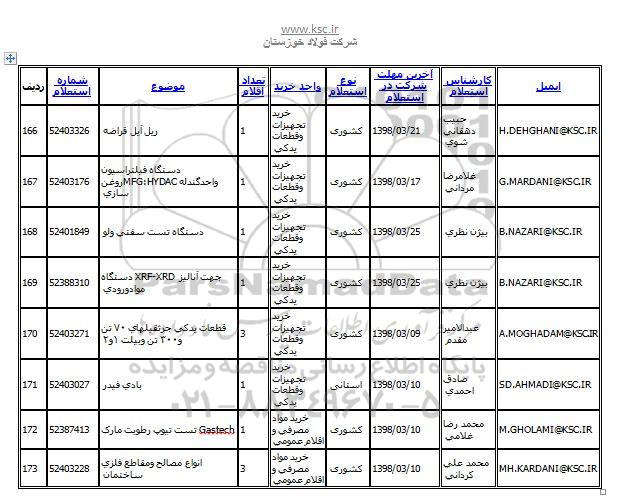 www.ksc.ir
شرکت فولاد خوزستان
ردیف شماره استعلام موضوع تعداد اقلام واحد خرید نوع استعلام آخرین مهلت شرکت در استعلام کارشناس استعلام ایمیل
166 52403326 ریل آیل قراضه 1 خرید تجهیزات وقطعات یدکی کشوری 1398/03/21 حبیب دهقاني شوي H.DEHGHANI@KSC.IR
167 52403176 دستگاه فیلتراسیون روغنMFG:HYDAC واحدگندله سازي 1 خرید تجهیزات وقطعات یدکی کشوری 1398/03/17 غلامرضا مرداني G.MARDANI@KSC.IR
168 52401849 دستگاه تست سفتي ولو 1 خرید تجهیزات وقطعات یدکی کشوری 1398/03/25 بیژن نظري B.NAZARI@KSC.IR
169 52388310 دستگاه XRF-XRD جهت آنالیز موادورودي 1 خرید تجهیزات وقطعات یدکی کشوری 1398/03/25 بیژن نظري B.NAZARI@KSC.IR
170 52403271 قطعات یدکی جرثقیلهاي ۷۰ تن و۳۰۰ تن وبیلت ۱و۲ 3 خرید تجهیزات وقطعات یدکی کشوری 1398/03/09 عبدالامیر مقدم A.MOGHADAM@KSC.IR
171 52403027 بادي فیدر 1 خرید تجهیزات وقطعات یدکی استانی 1398/03/10 صادق احمدي SD.AHMADI@KSC.IR
172 52387413 تست تیوپ رطوبت مارک Gastech 1 خرید مواد مصرفي و اقلام عمومي کشوری 1398/03/10 محمد رضا غلامي M.GHOLAMI@KSC.IR
173 52403228 انواع مصالح ومقاطع فلزي ساختمان 3 خرید مواد مصرفي و اقلام عمومي کشوری 1398/03/10 محمد علي کرداني MH.KARDANI@KSC.IR
ParsNamadData
پایگاه اطلاع رسانی مناقصه و مزایده
۰۲۱-۸۸۳۴۹۶۷۰-۵